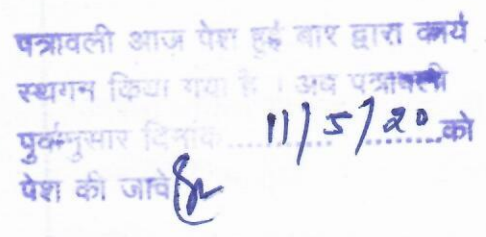 पत्रावली आज पेश हुई बार द्वारा कार्य
स्थगन किया गया है । अब पत्रावली
पुर्वानुसार दिनांक ..... 11/5/20 .....को
पेश की जावे